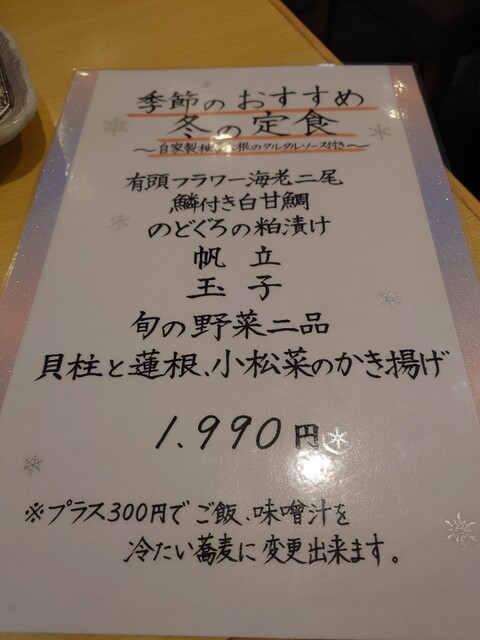 季節のおすすめ
冬の定食
～自家製柚子大根のタルタルソース付き～
有頭フラワー海老二尾
鱗付き白甘鯛
のどぐろの粕漬け
帆立
玉子
旬の野菜二品
貝柱と蓮根、小松菜のかき揚げ
1.990円
※プラス300円でご飯、味噌汁を
冷たい蕎麦に変更出来ます。